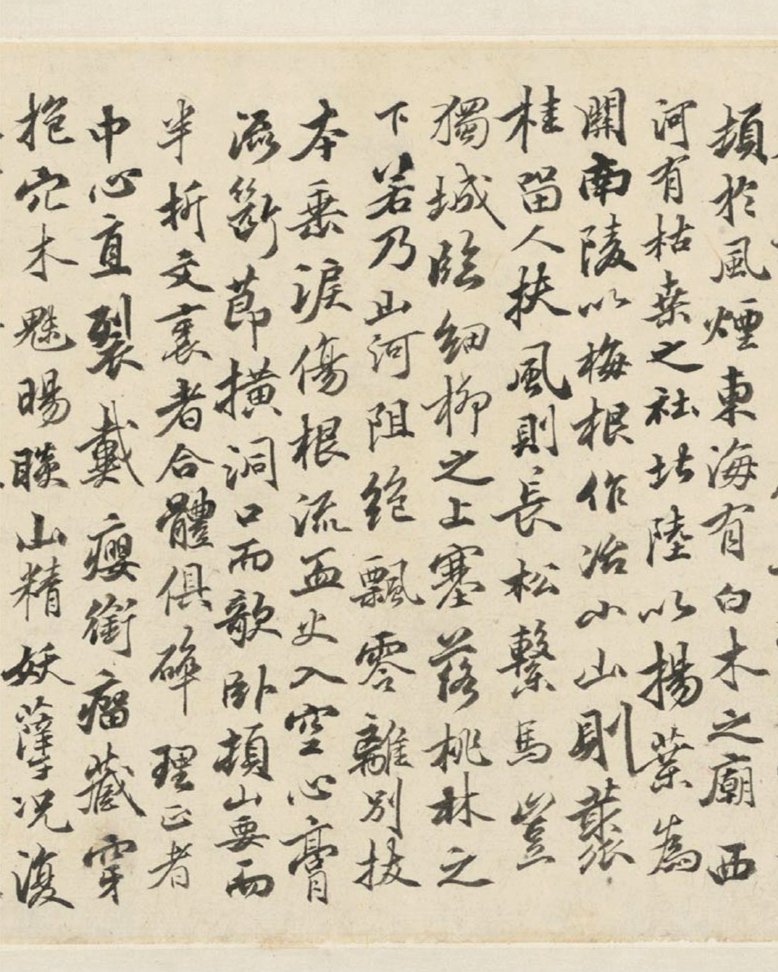 頓於風煙東海有白木之廟西
河有枯桒之社北陸以揚葉為
關南陵以梅根作冶小山則藂
桂留人扶風則長松繫馬豈
獨城臨細柳之上塞落桃林之
下若乃山河阻絕飄零離別拔
本垂淚傷根流血火入空心膏
流斷節橫洞口而欹卧頓山要而
半折文衺者合體俱碎理正者
中心直裂戴癭銜瘤藏穿
抱穴木魅暘睒山精妖孽况復